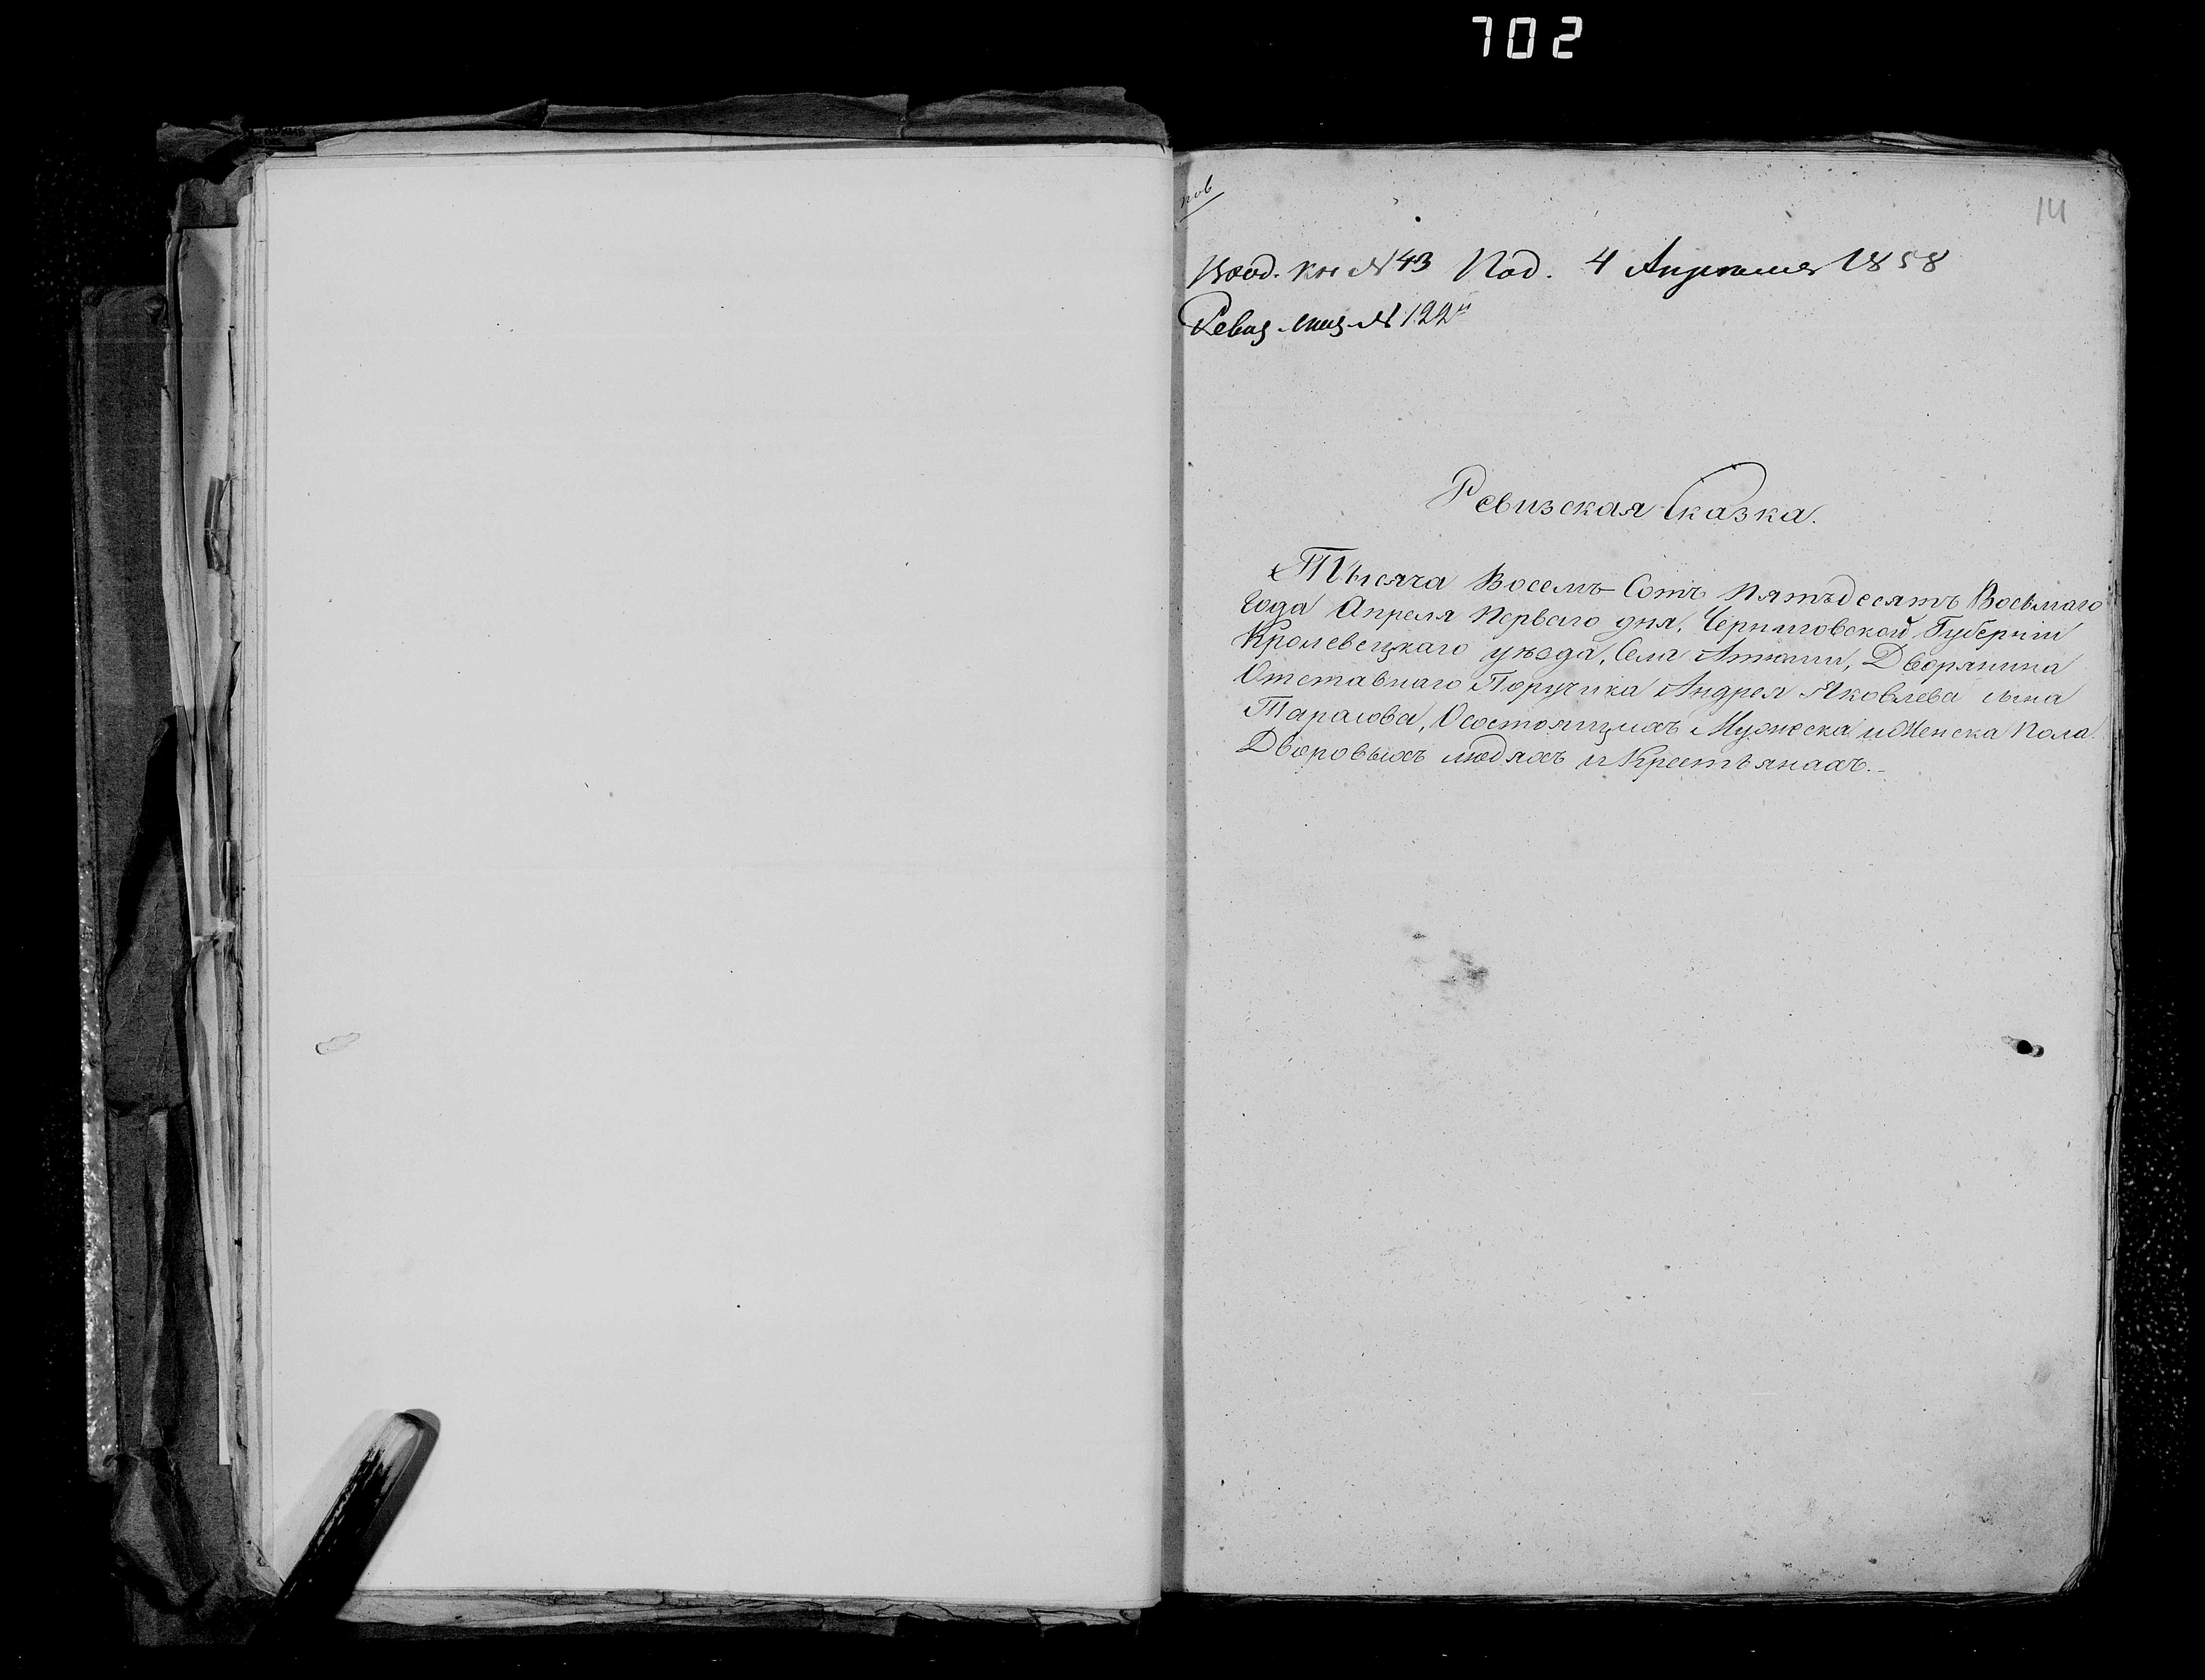 702
14
Вход. кн № 43 Под. 4 Апреля 1858
Ревиз. № 122
Ревизская Сказка.
Тысяча Восемь Сотъ Пятьдесятъ Восьмаго
Года Апреля Перваго дня, Черниговской Губерніи
Кролевецкаго уѣзда, Села Дворянина
Отставнаго Поручика Андрея Яковлева сына
Тарасова, О состоящихъ Мужеска и Женска Пола
Дворовыхъ людяхъ и Крестьянахъ.